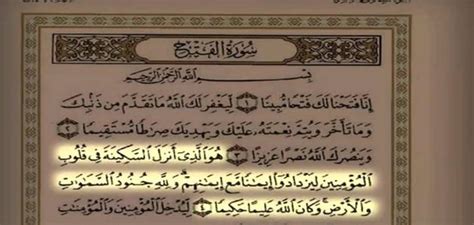 سُورَةُ الْفَتْحِ
بِسْمِ اللَّهِ الرَّحْمَٰنِ الرَّحِيمِ
إِنَّا فَتَحْنَا لَكَ فَتْحًا مُّبِينًا ١ لِّيَغْفِرَ لَكَ اللَّهُ مَا تَقَدَّمَ مِن ذَنبِكَ
وَمَا تَأَخَّرَ وَيُتِمَّ نِعْمَتَهُ عَلَيْكَ وَيَهْدِيَكَ صِرَاطًا مُّسْتَقِيمًا ٢
وَيَنصُرَكَ اللَّهُ نَصْرًا عَزِيزًا ٣ هُوَ الَّذِي أَنزَلَ السَّكِينَةَ فِي قُلُوبِ
الْمُؤْمِنِينَ لِيَزْدَادُوا إِيمَانًا مَّعَ إِيمَانِهِمْ ۗ وَلِلَّهِ جُنُودُ السَّمَاوَاتِ
وَالْأَرْضِ ۚ وَكَانَ اللَّهُ عَلِيمًا حَكِيمًا ٤ لِّيُدْخِلَ الْمُؤْمِنِينَ وَالْمُؤْمِنَاتِ